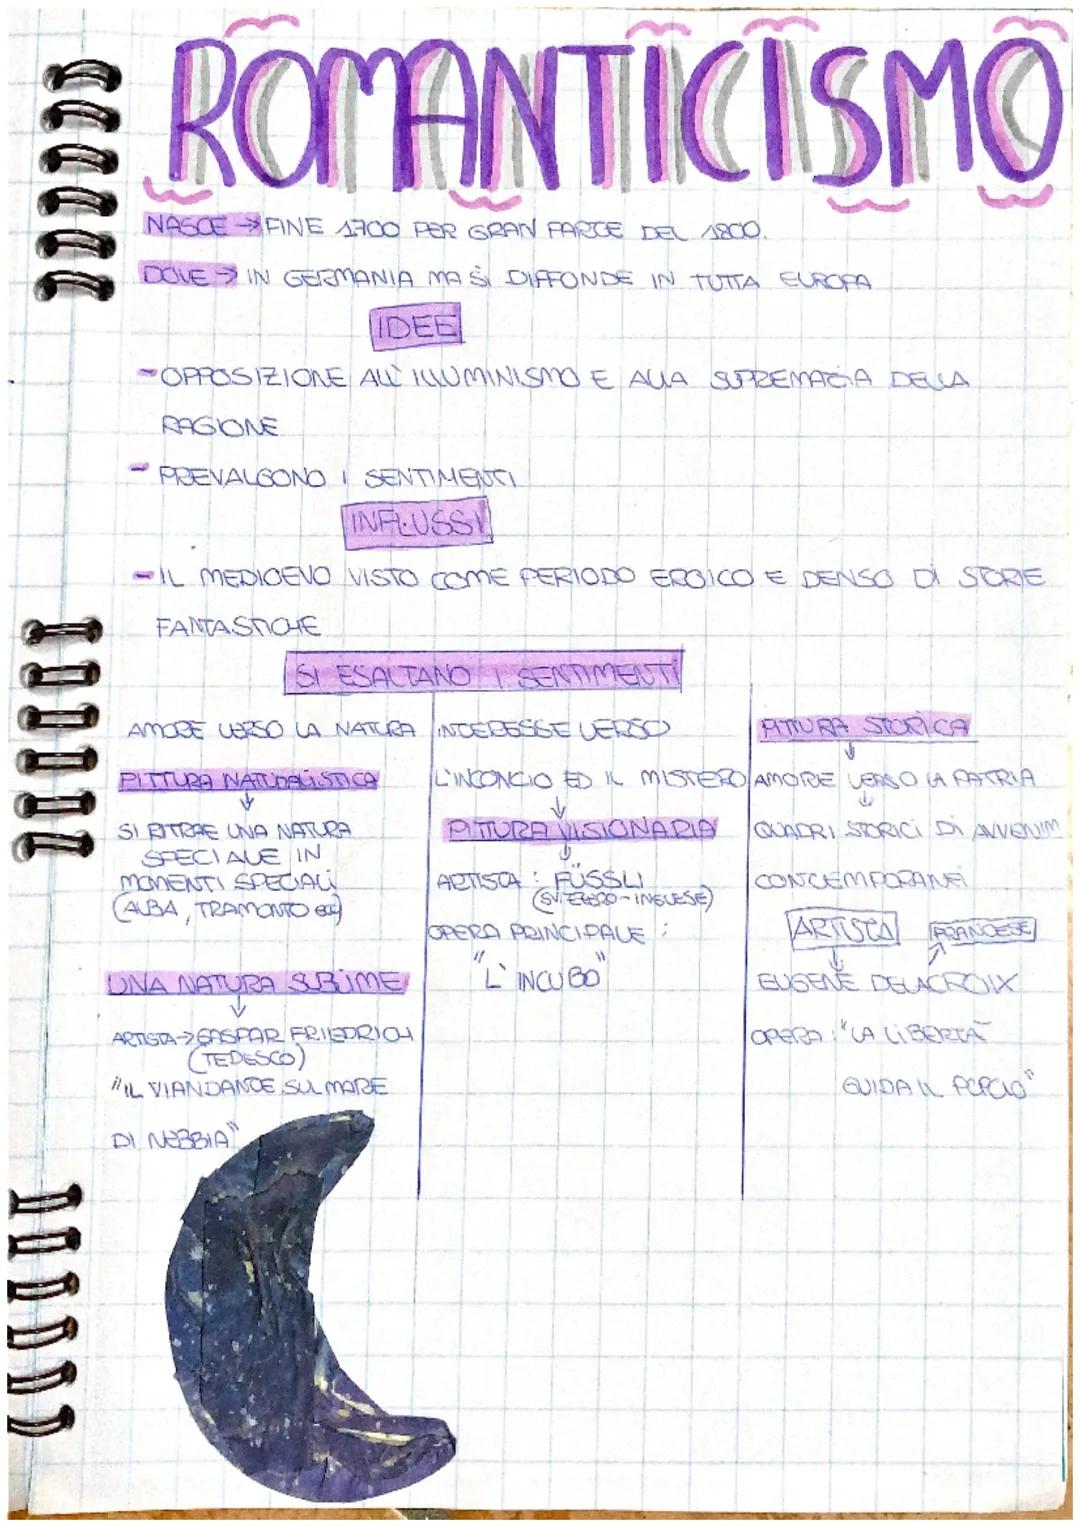 ROMANTICISMO
NASCE → FINE 1700 PER GRAN PARTE DEL 1800.
DOVE → IN GERMANIA MA SI DIFFONDE IN TUTTA EUROPA
IDEE
- OPPOSIZIONE ALL' ILLUMINISMO E ALLA SUPREMAZIA DELLA
RAGIONE
- PREVALGONO I SENTIMENTI
INFLUSSI
- IL MEDIOEVO VISTO COME PERIODO EROICO E DENSO DI STORIE
FANTASTICHE
SI ESALTANO I SENTIMENTI
AMORE VERSO LA NATURA
PITTURA NATURALISTICA
↓
SI RITRAE UNA NATURA
SPECIALE IN
MOMENTI SPECIALI
(ALBA, TRAMONTO ecc)
UNA NATURA SUBLIME
↓
ARTISTA → GASPAR FRIEDRICH
(TEDESCO)
"IL VIANDANTE SUL MARE
DI NEBBIA"
INTERESSE VERSO
L'INCONCIO ED IL MISTERO
↓
PITTURA VISIONARIA
↓
ARTISTA: FÜSSLI
(SVIZZERO-INGLESE)
OPERA PRINCIPALE:
"L'INCUBO"
PITTURA STORICA
↓
AMORE VERSO LA PATRIA
↓
QUADRI STORICI DI AVVENIM
CONTEMPORANEI
ARTISTA FRANCESE
↓ ↗
EUGENE DELACROIX
OPERA: "LA LIBERTÀ
GUIDA IL POPOLO"